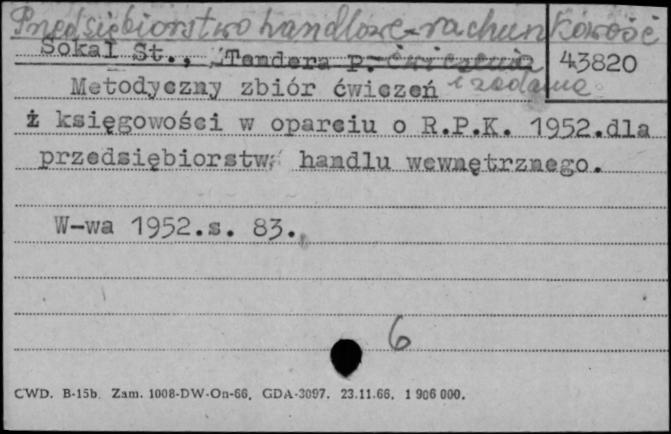 Przedsiębiorstwo handlowe-rachunkowość
Sokal St., Tendera P. ćwiczenia
43820
Metodyczny zbiór ćwiczeń i zadania
ż księgowości w oparciu o R.P.K. 1952.dla
przedsiębiorstw handlu wewnętrznego.
W-wa 1952.s. 83.
6
CWD. B-15b. Zam. 1008-DW-On-66. GDA-3097. 23.11.66. 1 906 000.